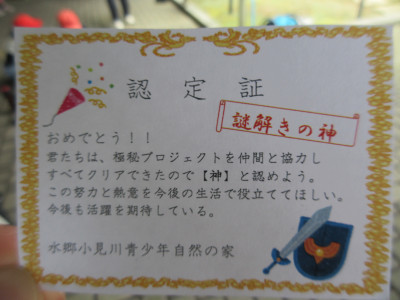 認定証
謎解きの神
おめでとう！！
君たちは、極秘プロジェクトを仲間と協力し
すべてクリアできたので【神】と認めよう。
この努力と熱意を今後の生活で役立ててほしい。
今後も活躍を期待している。
水郷小見川青少年自然の家